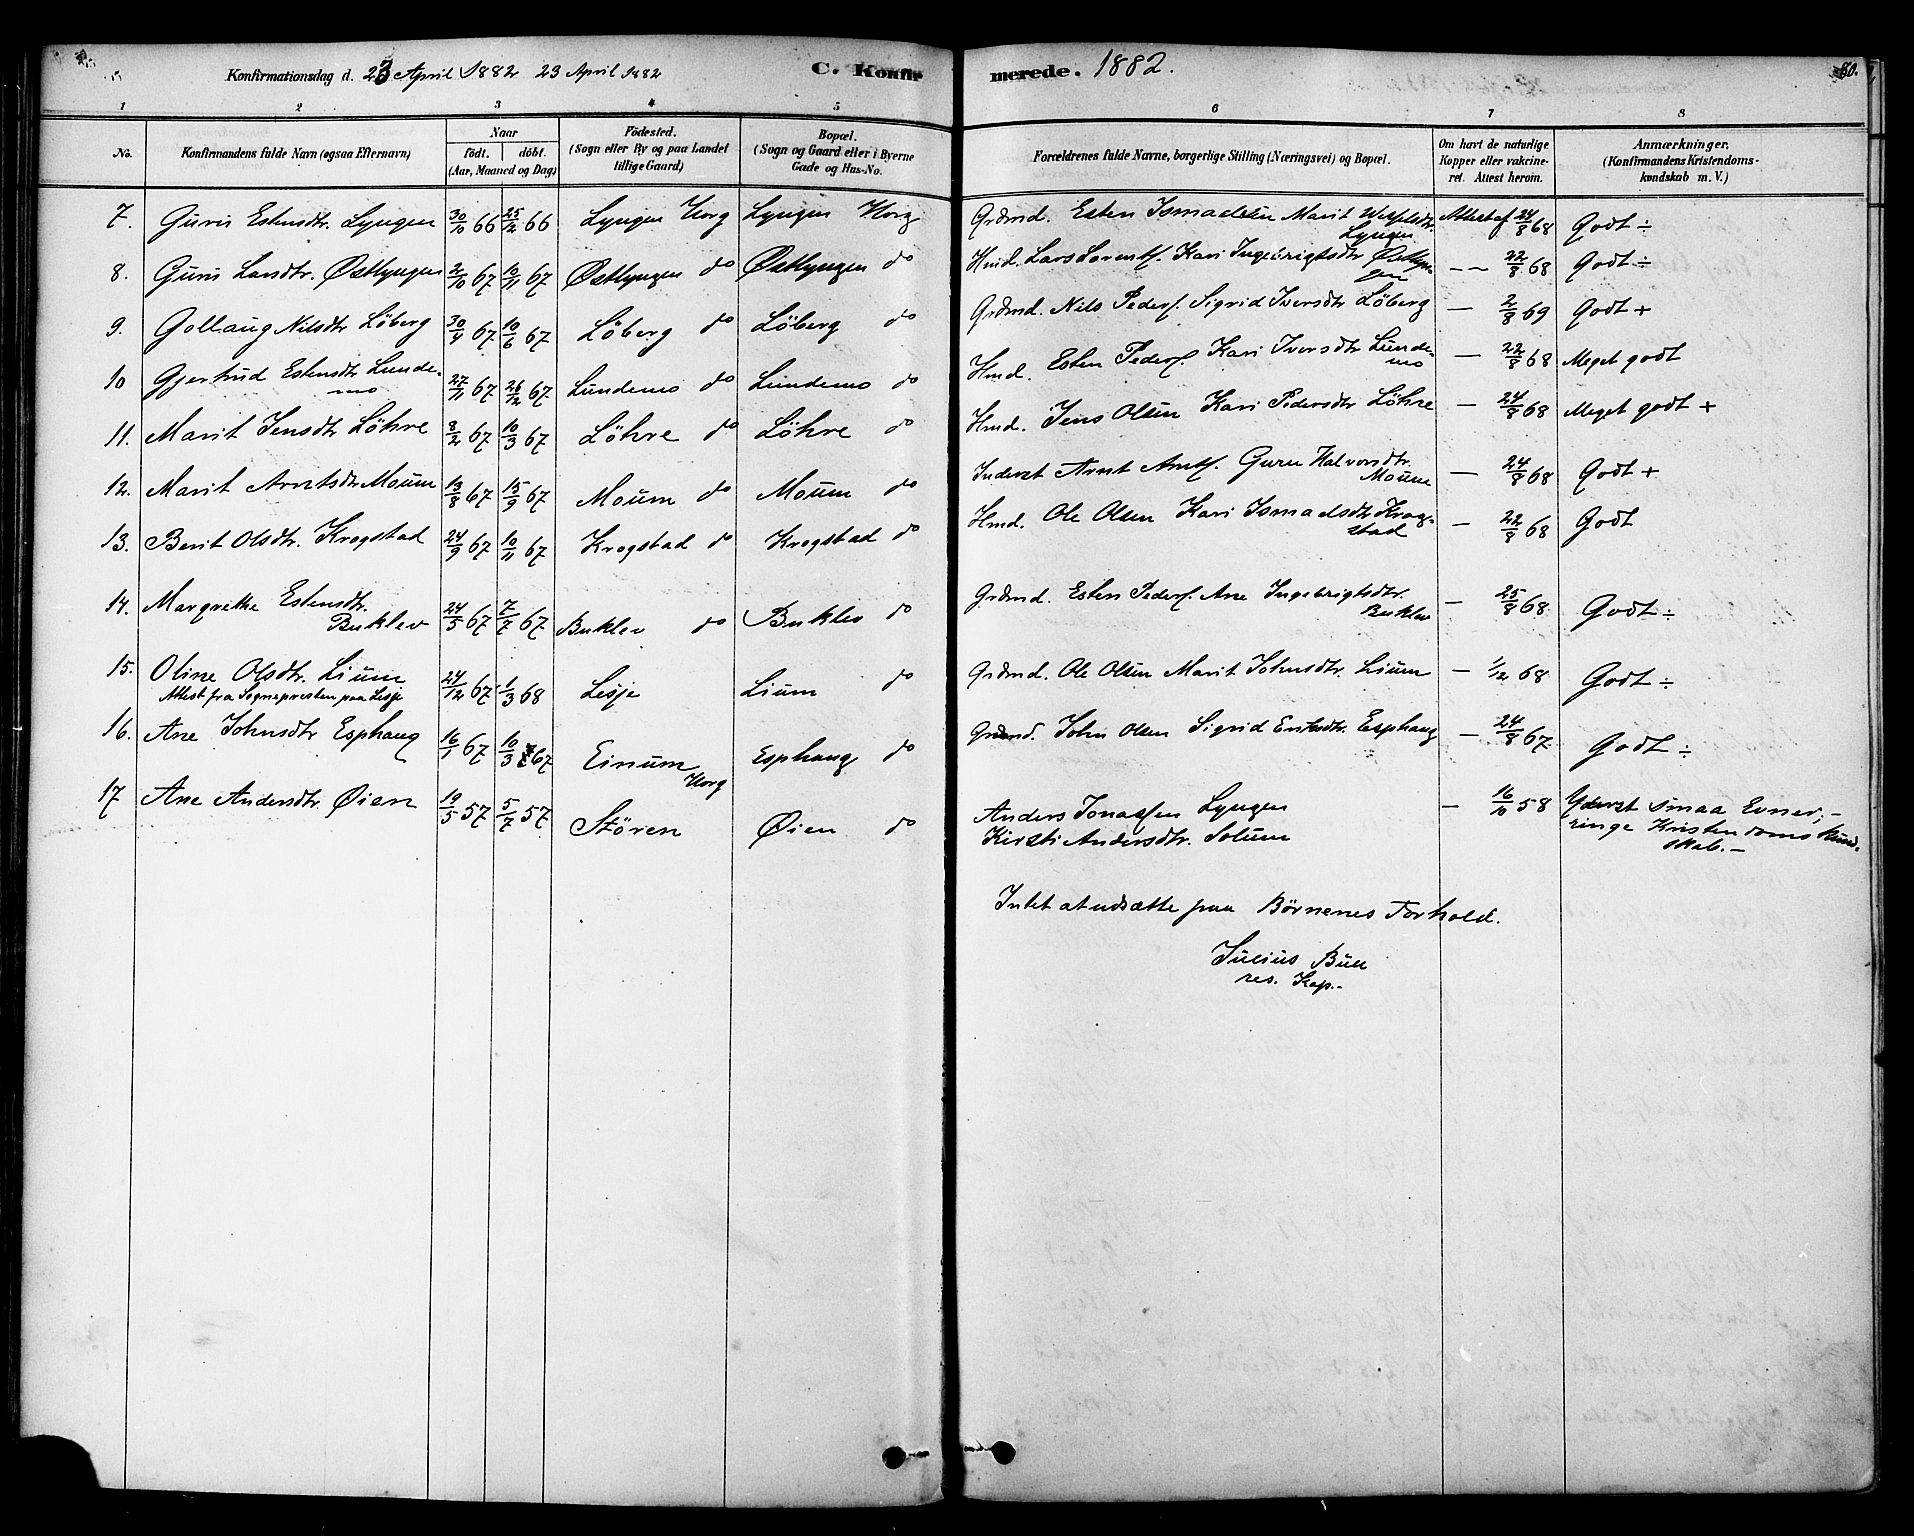 Konfirmationsdag d. 23 April 1882 23 April 1882 C. Konfirmerede. 1882. 80.
1 2 3 4 5 6 7 8
No. Konfirmandens fulde Navn (ogsaa Efternavn) Naar födt. döbt. (Aar, Maaned og Dag) Födested. (Sogn eller By og paa Landet tillige Gaard) Bopæl. (Sogn og Gaard eller i Byerne Gade og Hus-No. Forældrenes fulde Navne, borgerlige Stilling (Næringsvei) og Bopæl. Om havt de naturlige Kopper eller vakcineret. Attest herom. Anmærkninger. (Konfirmandens Kristendomskundskab m. V.)
7. Guru Estensdtr. Lyngen 30/10 66 25/12 66 Lyngen Horg Lyngen Horg Grdmd. Esten Ismaelsen Marit Lyngen Attest af 24/8 68 Godt ÷
8. Guru Larsdtr. Østlyngen 2/10 67 10/11 67 Østlyngen do Østlyngen do Hmd. Lars Lorents. Kari Ingebrigtsdtr Østlyngen — 22/8 68 Godt ÷
9. Gollaug Nilsdtr Löberg 30/4 67 10/6 67 Löberg do Löberg do Grdmd. Nils Peders. Sigrid Iversdtr Löberg — 2/8 69 Godt +
10 Gjertrud Estensdtr Lundemo 27/11 67 26/12 67 Lundemo do Lundemo do Hmd. Esten Peders. Kari Iversdtr Lundemo — 22/8 68 Meget godt
11. Marit Jensdtr Löhre 8/2 67 10/3 67 Löhre do Löhre do Hmd. Jens Olsen Kari Pedersdtr Löhre — 24/8 68 Meget godt +
12. Marit Arntsdtr Moum 13/8 67 15/9 67 Moum do Moum do Inderst Arnt Arnts. Guru Halvorsdtr. Moum — 24/8 68 Godt +
13. Berit Olsdtr. Krogstad 24/9 67 10/11 67 Krogstad do Krogstad do Hmd. Ole Olsen Kari Ismaelsdtr Krogstad — 22/8 68 Godt
14. Margrethe Estensdtr. Buklev 24/5 67 7/7 67 Buklev do Buklev do Grdmd. Esten Peders. Ane Ingebrigtsdtr. Buklev — 25/8 68 Godt ÷
15. Oline Olsdtr. Lium 24/12 67 1/3 68 Lesje Lium do Grdmd. Ole Olsen Marit Johnsdtr. Lium — 1/12 68 Godt ÷
Attest fra Sognepresten paa Lesje
16. Ane Johnsdtr Esphaug 16/1 67 10/3 67 Einum Horg Esphaug do Grdmd. John Olsen Sigrid Eriksdtr. Esphaug — 24/8 67 Godt ÷
17 Ane Andersdtr. Øien 19/5 57 5/7 57 Stören Øien do Anders Jonassen Lyngen Kirsti Andersdtr. Solum — 16/10 58 Yderst smaa Evner,— ringe Kristendomskundskab.—
Intet at udsætte paa Børnenes Forhold.
Julius Bull
res. Kap.-